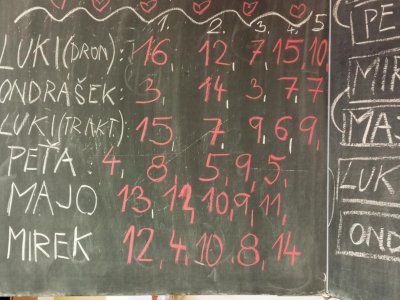 1. 2. 3. 4. 5
LUKI(DRON): 16, 12, 7, 15, 10
ONDRÁŠEK: 3, 14, 3, 7, 7
LUKI(TRAKT.): 15, 7, 9, 6, 9,
PEŤA: 4, 8, 5, 9, 5,
MAJO 13, 12, 10, 9, 11,
MIREK 12, 4, 10, 8, 14
PE
MIR
MAJ
LUK
OND